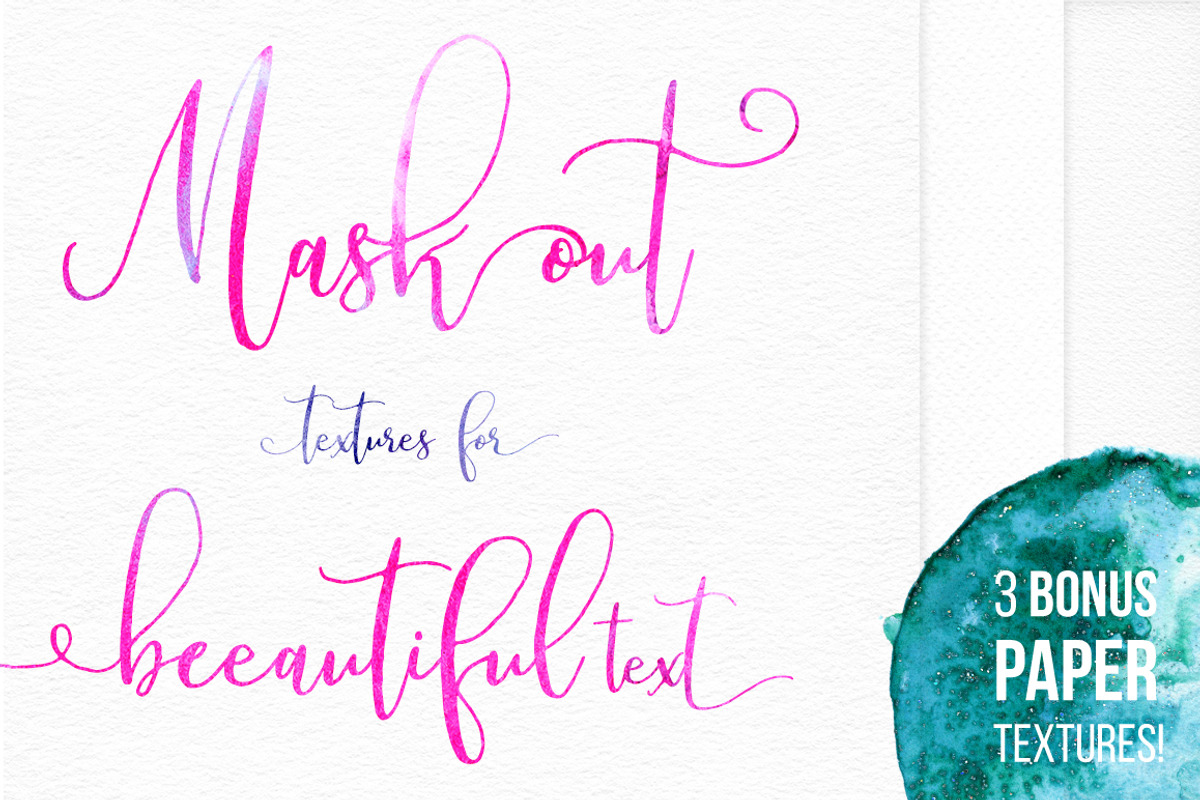 Mask out
textures for
beeautiful text
3 BONUS
PAPER
TEXTURES!